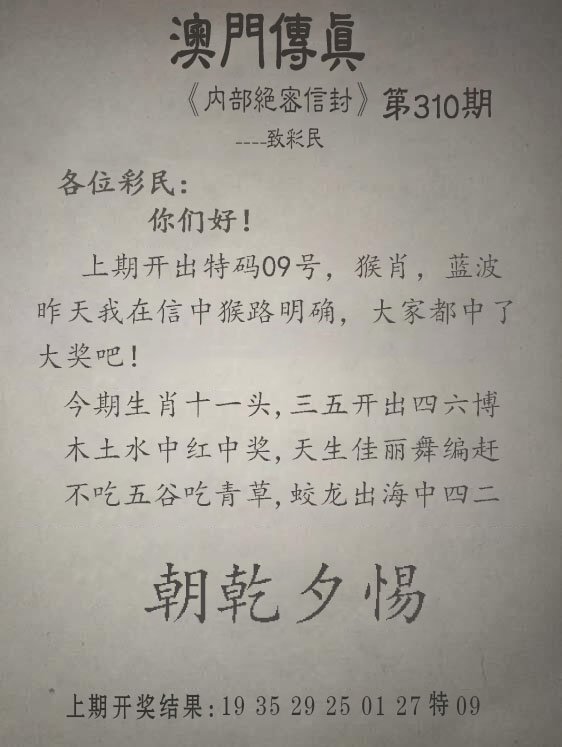 澳門傳真
《内部絕密信封》第310期
----致彩民
各位彩民：
你们好！
上期开出特码09号，猴肖，蓝波
昨天我在信中猴路明确，大家都中了
大奖吧！
今期生肖十一头,三五开出四六博
木土水中红中奖,天生佳丽舞编赶
不吃五谷吃青草,蛟龙出海中四二
朝乾夕惕
上期开奖结果:19 35 29 25 01 27 特 09